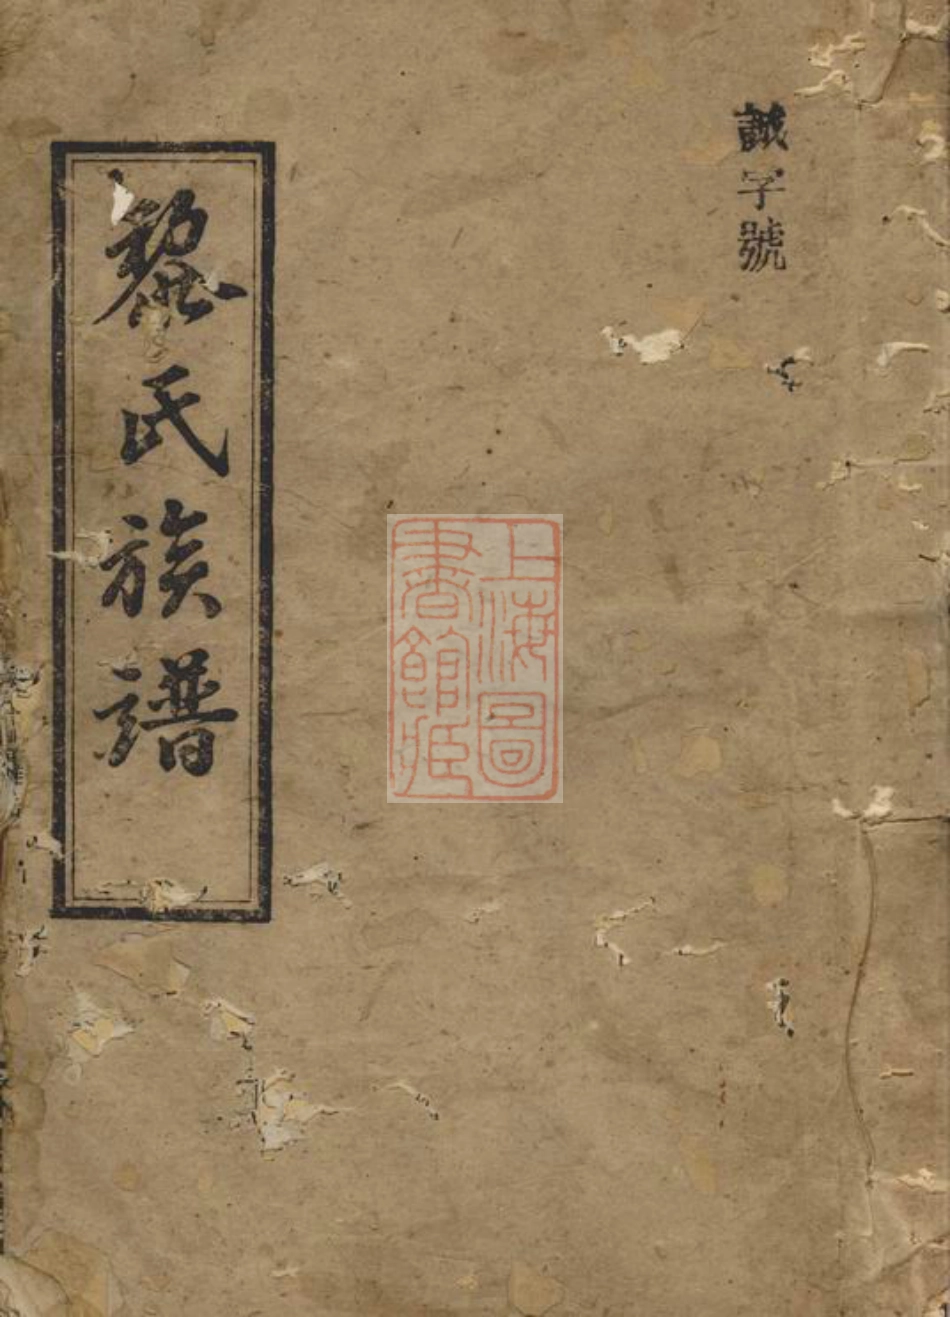 誠字號
上海圖
書館藏
黎氏族譜